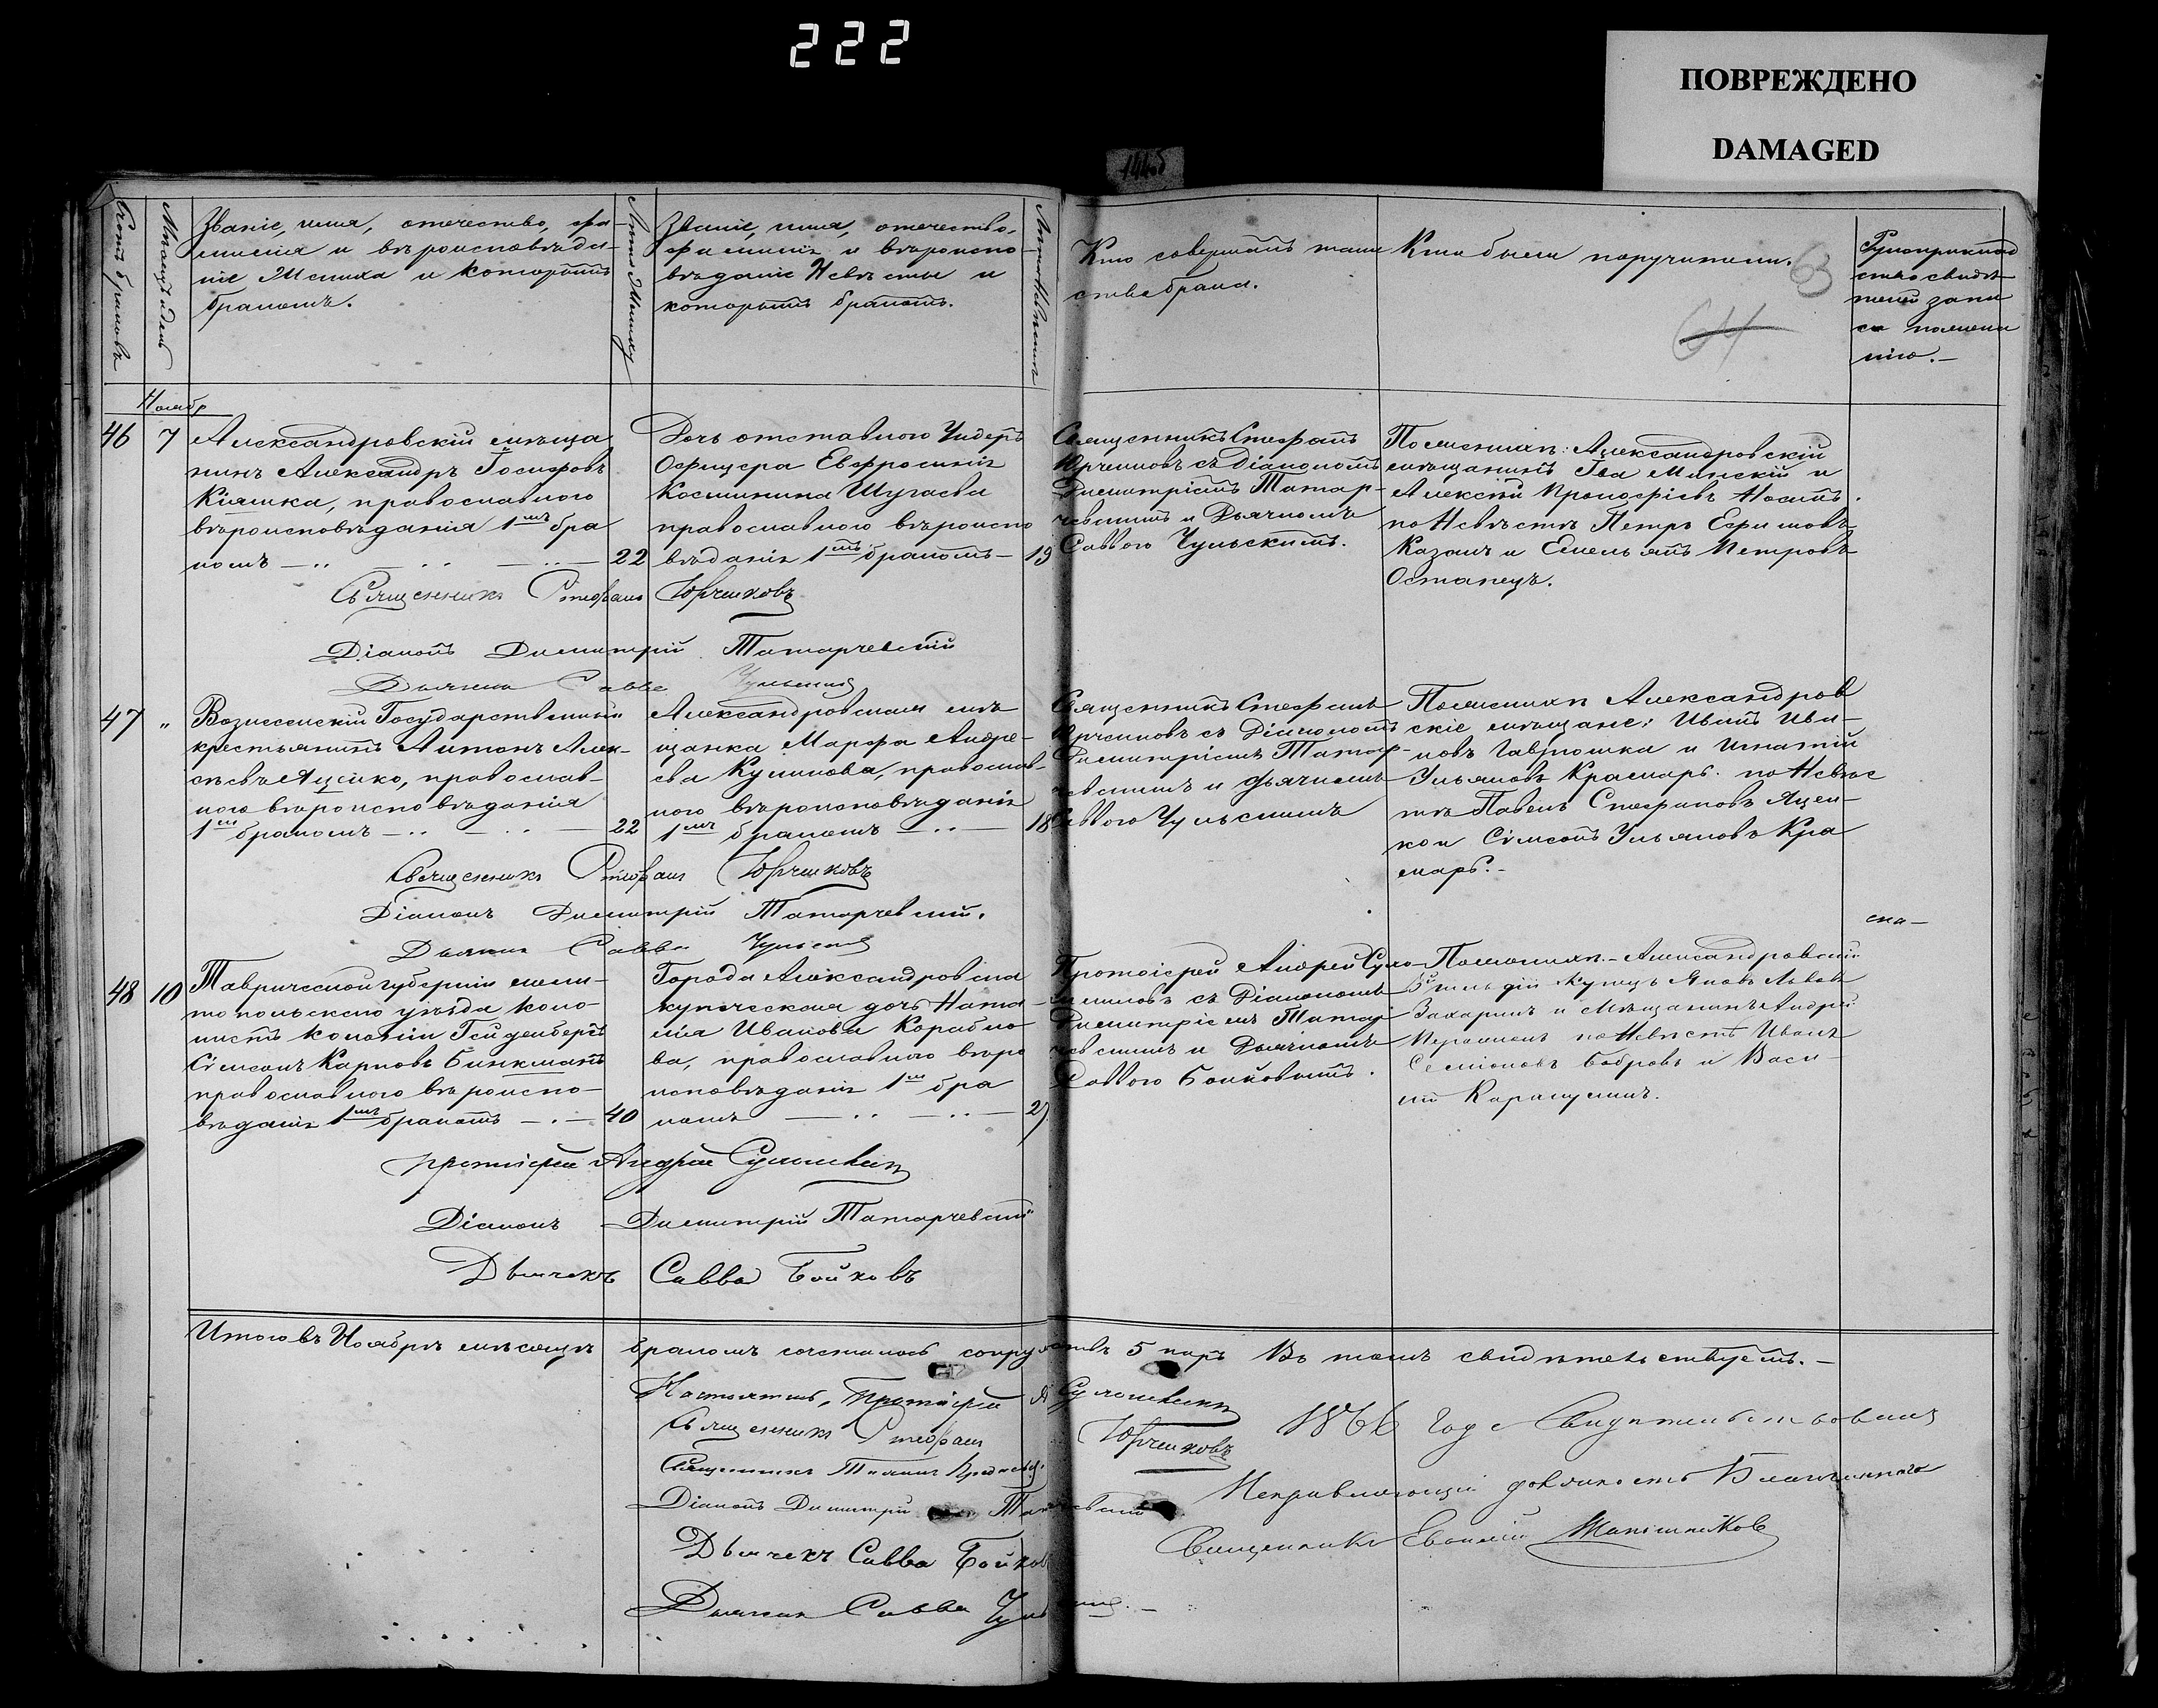 222
ПОВРЕЖДЕНО
DAMAGED
Счетъ браковъ
Мѣсяцъ и день
Званіе, имя, отечество, фа-
милія и вѣроисповѣда-
ніе Жениха и которымъ
бракомъ.
Лѣта Жениху
Званіе, имя, отечество,
фамилія и вѣроиспо-
вѣданіе Невѣсты и
которымъ бракомъ.
Лѣта Невѣсты
Кто совершалъ таин
ство брака.
Кто были поручители.
63
64
Рукоприклад
ство свидѣ
телей запи
си по желанію.—
Ноябр
46
7
Александровскій мѣща
нинъ Александръ Іосифовъ
Кіяшка, православного
вѣроисповѣданія 1мъ бра
комъ
22
Дочь отставного Ундеръ
Офицера Евфросинія
Косминина Шугаева
православного вѣроиспо
вѣданія 1мъ бракомъ—
19
Священникъ Стефанъ
Юрченковъ съ Діакономъ
Димитріемъ Татар-
чевскимъ и Дьячкомъ
Саввою Чульскимъ.
По женихѣ: Александровскій
мѣщанинъ Минскій и
Алексѣй
по Невѣстѣ Петръ Ефимовъ
Казанъ и Емельянъ Петровъ
Остапецъ.
Священникъ Стефанъ Юрченковъ
Діаконъ Димитрій Татарчевскій
Дьячекъ Савва Чульскій
47
"
Вознесенскій Государственный
крестьянинъ Антонъ Алек-
сѣевъ Яценко, православ-
ного вѣроисповѣданія
1мъ бракомъ
22
Александровская мѣ
щанка Марфа Андре-
ева Куликова, православ-
ного вѣроисповѣданія
1мъ бракомъ
18
Священникъ Стефанъ
Юрченковъ съ Діакономъ
Димитріемъ Татар-
чевскимъ и Дьячкомъ
Саввою Чульскимъ
По женихѣ Александров
скіе мѣщане: Иванъ Ива-
новъ Гаврюшка и Игнатій
Ульяновъ Крамарь. по Невѣс
тѣ Павелъ Стефановъ Яцен-
ко и Сѵмеонъ Ульяновъ Кра
марь.-
Священникъ Стефанъ Юрченковъ
Діаконъ Димитрій Татарчевскій.
Дьячекъ Савва Чульскій
48
10
Таврической губерніи мели-
топольского уѣзда, коло-
нистъ колоніи Гейденбергъ
Сѵмеонъ Карповъ Бинкманъ
православного вѣроиспо-
вѣданія 1мъ бракомъ
40
Города Александровска
купеческая дочь Ната-
лія Иванова Корабло-
ва, православного вѣро
исповѣданія 1мъ бра
комъ
27
Протоіерей Андрей Суло-
съ Діакономъ
Димитріемъ Татар-
чевскимъ и Дьячкомъ
Саввою Бойковымъ.
По женихѣ.- Александровскій
гильдіи Купецъ Яковъ Львовъ
Захаринъ и Мѣщанинъ Андрей
по Невѣстѣ Иванъ
Семіоновъ Бобровъ и Васи-
лій
Протоіерей Андрей
Діаконъ Димитрій Татарчевскій
Дьячекъ Савва Бойковъ
Итого въ Ноябрѣ мѣсяцѣ бракомъ сочеталось супружествъ 5 паръ Въ томъ свидѣтельствуемъ.—
Настоятель, Протоіерей А
Священникъ Стефанъ Юрченковъ
Священникъ
Діаконъ Димитрій Татарчевскій
Дьячекъ Савва Бойковъ
Дьячекъ Савва Чульскій.—
1866 Года Свидѣтельствовалъ
Исправляющій должность Благочиннаго
Священникъ Евфимій